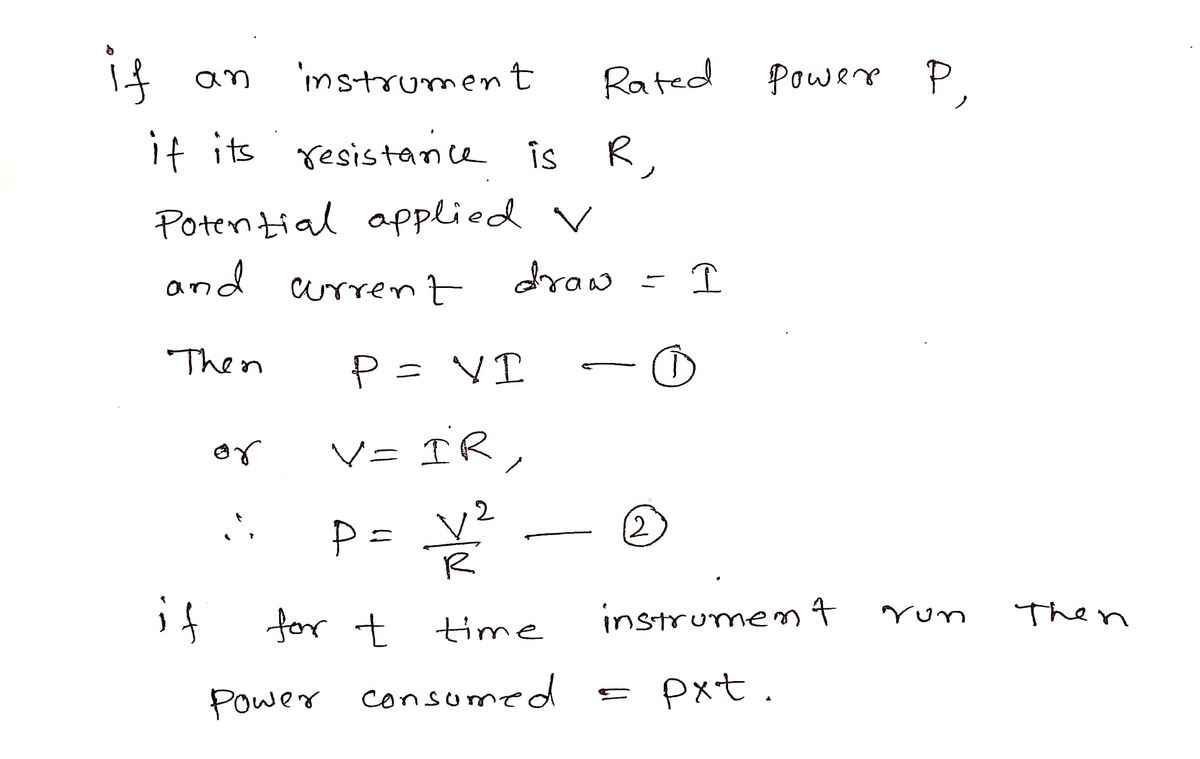 if an instrument Rated power P,
if its resistance is R,
Potential applied V
and current draw = I
Then P = VI — ①
or V = IR,
∴ P = V²/R — ②
if for t time instrument run Then
Power consumed = P×t.